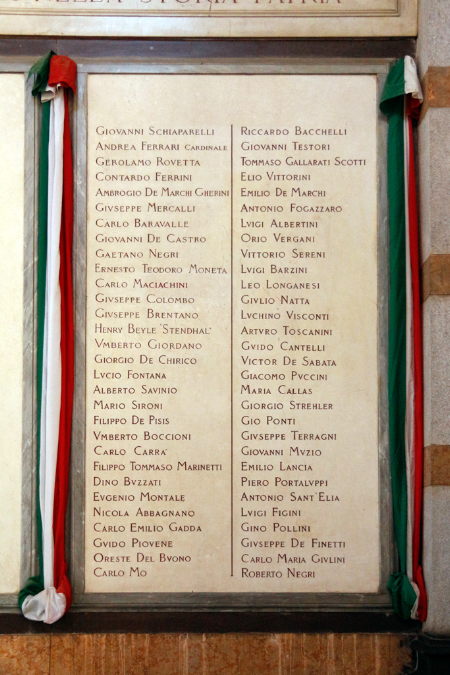 NELLA STORIA PATRIA
GIOVANNI SCHIAPARELLI
ANDREA FERRARI CARDINALE
GEROLAMO ROVETTA
CONTARDO FERRINI
AMBROGIO DE MARCHI GHERINI
GIVSEPPE MERCALLI
CARLO BARAVALLE
GIOVANNI DE CASTRO
GAETANO NEGRI
ERNESTO TEODORO MONETA
CARLO MACIACHINI
GIVSEPPE COLOMBO
GIVSEPPE BRENTANO
HENRY BEYLE "STENDHAL"
VMBERTO GIORDANO
GIORGIO DE CHIRICO
LVCIO FONTANA
ALBERTO SAVINIO
MARIO SIRONI
FILIPPO DE PISIS
VMBERTO BOCCIONI
CARLO CARRA'
FILIPPO TOMMASO MARINETTI
DINO BVZZATI
EVGENIO MONTALE
NICOLA ABBAGNANO
CARLO EMILIO GADDA
GVIDO PIOVENE
ORESTE DEL BVONO
CARLO MO
RICCARDO BACCHELLI
GIOVANNI TESTORI
TOMMASO GALLARATI SCOTTI
ELIO VITTORINI
EMILIO DE MARCHI
ANTONIO FOGAZZARO
LVIGI ALBERTINI
ORIO VERGANI
VITTORIO SERENI
LVIGI BARZINI
LEO LONGANESI
GIVLIO NATTA
LVCHINO VISCONTI
ARTVRO TOSCANINI
GVIDO CANTELLI
VICTOR DE SABATA
GIACOMO PVCCINI
MARIA CALLAS
GIORGIO STREHLER
GIO PONTI
GIVSEPPE TERRAGNI
GIOVANNI MVZIO
EMILIO LANCIA
PIERO PORTALVPPI
ANTONIO SANT'ELIA
LVIGI FIGINI
GINO POLLINI
GIVSEPPE DE FINETTI
CARLO MARIA GIVLINI
ROBERTO NEGRI